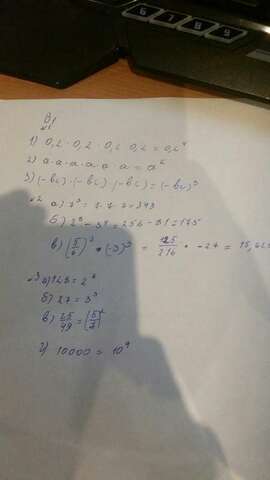 В1
№1
1) 0,2 · 0,2 · 0,2 · 0,2 = 0,2⁴
2) a·a·a·a·a · a = a⁶
3) (-bc) · (-bc) · (-bc) = (-bc)³
№2 a) 7³ = 7·7·7 = 343
б) 2⁸ - 3⁴ = 256 - 81 = 175
в) (5/6)³ · (-3)³ = 125/216 · -27 = 15,625
№3 a) 128 = 2⁶
б) 27 = 3³
в) 25/49 = (5/7)²
г) 10000 = 10⁴
6 7 8 9